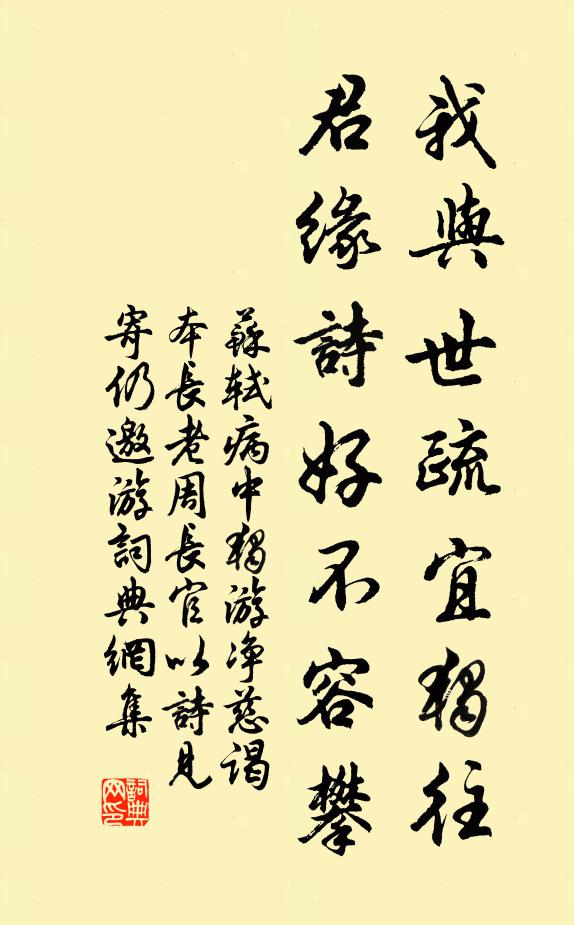 我與世疏宜獨往
君緣詩好不容攀
蘇軾病中獨游净慈謁
本長老周長官以詩見
寄仍邀游詞典網集
詞典
网印